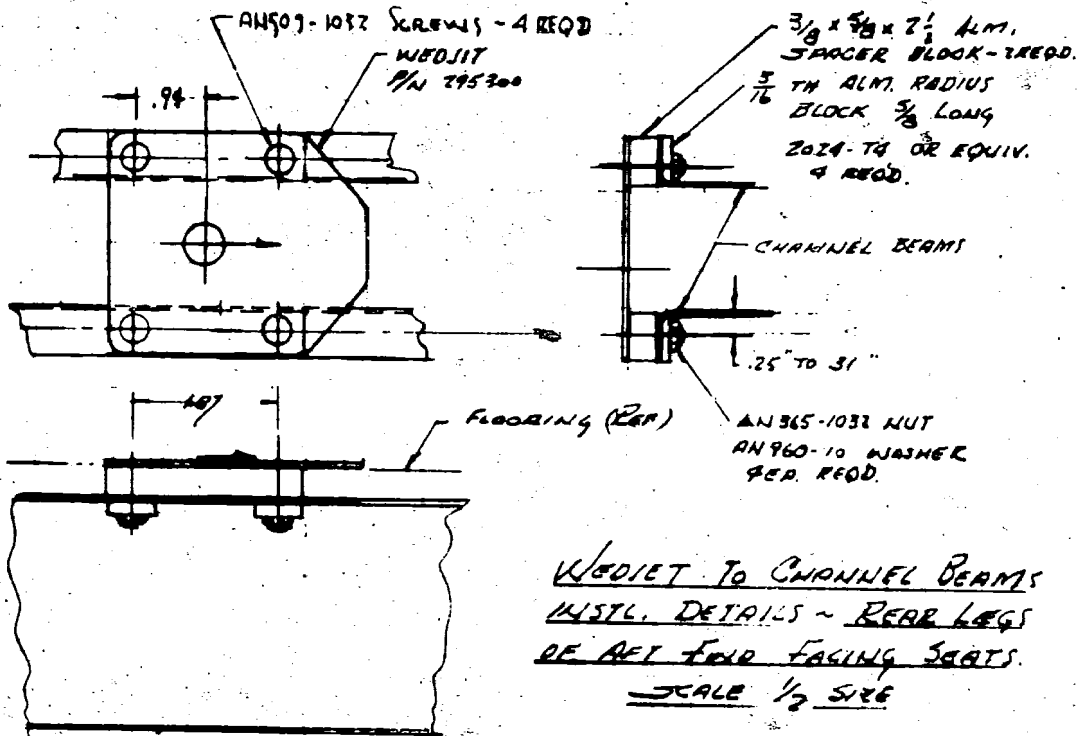 AN509-1032 SCREWS - 4 REQD
WEDJIT
P/N 295300
.94
3/8 x 5/8 x 2 1/2 ALM.
SPACER BLOCK - 2 REQD.
5/16 TH ALM. RADIUS
BLOCK 5/8 LONG
2024-T4 OR EQUIV.
4 REQD.
CHANNEL BEAMS
.25" TO 31"
FLOORING (REF)
AN365-1032 NUT
AN960-10 WASHER
4 EA. REQD.
WEDJET TO CHANNEL BEAMS
INSTL. DETAILS ~ REAR LEGS
OF AFT FWD FACING SEATS.
SCALE 1/2 SIZE